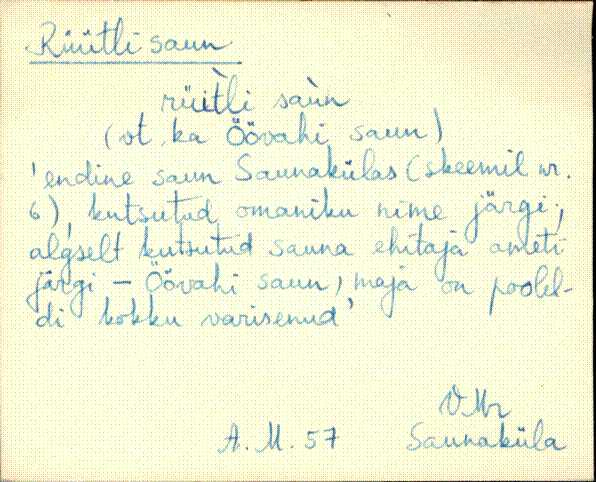 Rüütli saun
rüìt̀li saùn
(vt. ka Öövahi saun)
'endine saun Saunakülas (skeemil nr.
6), kutsutud omaniku nime järgi;
algselt kutsutud sauna ehitaja ameti
järgi – Öövahi saun, maja on poolel-
di kokku varisenud'
VMr
A. M. 57 Saunaküla